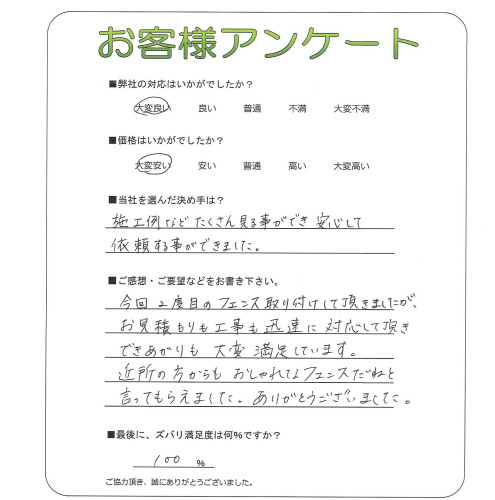 お客様アンケート
■弊社の対応はいかがでしたか？
大変良い 良い 普通 不満 大変不満
■価格はいかがでしたか？
大変安い 安い 普通 高い 大変高い
■当社を選んだ決め手は？
施工例などたくさん見る事ができ安心して
依頼する事ができました。
■ご感想・ご要望などをお書き下さい。
今回2度目のフェンス取り付けして頂きましたが、
お見積もりも工事も迅速に対応して頂き
できあがりも大変満足しています。
近所の方からもおしゃれなフェンスだねと
言ってもらえました。ありがとうございました。
■最後に、ズバリ満足度は何％ですか？
100 ％
ご協力頂き、誠にありがとうございました。